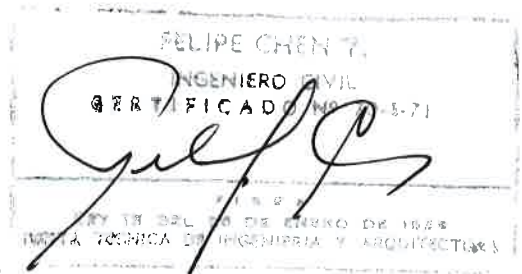 FELIPE CHEN
INGENIERO CIVIL
CERTIFICADO Nº
FIRMA
LEY 15 DEL DE ENERO DE
JUNTA TECNICA DE INGENIERIA Y ARQUITECTURA